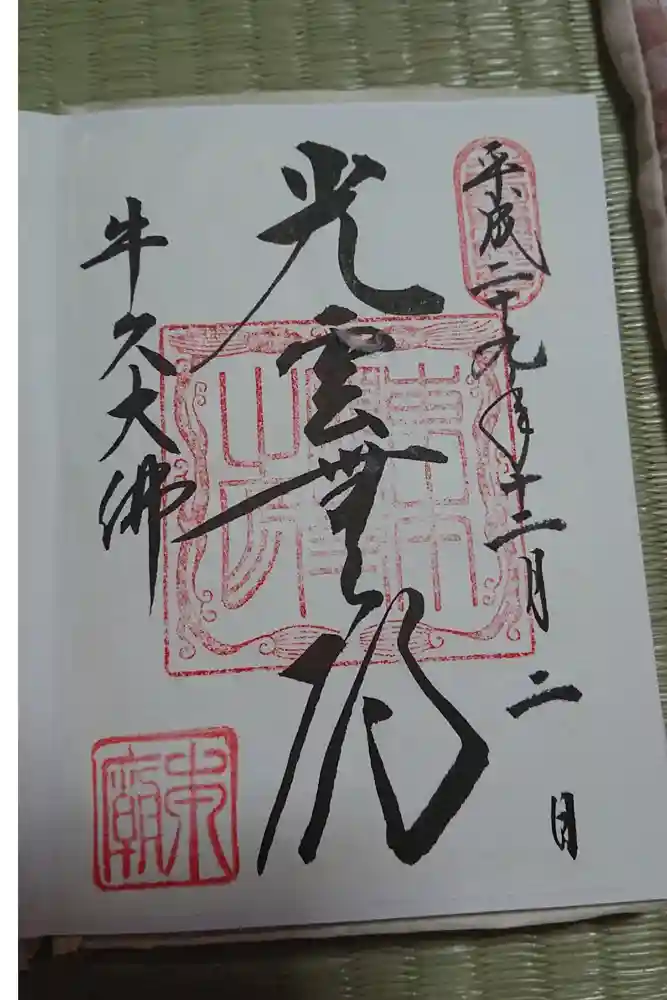 平成二十九年十二月二日
光雲無碍
牛久大佛
東廟